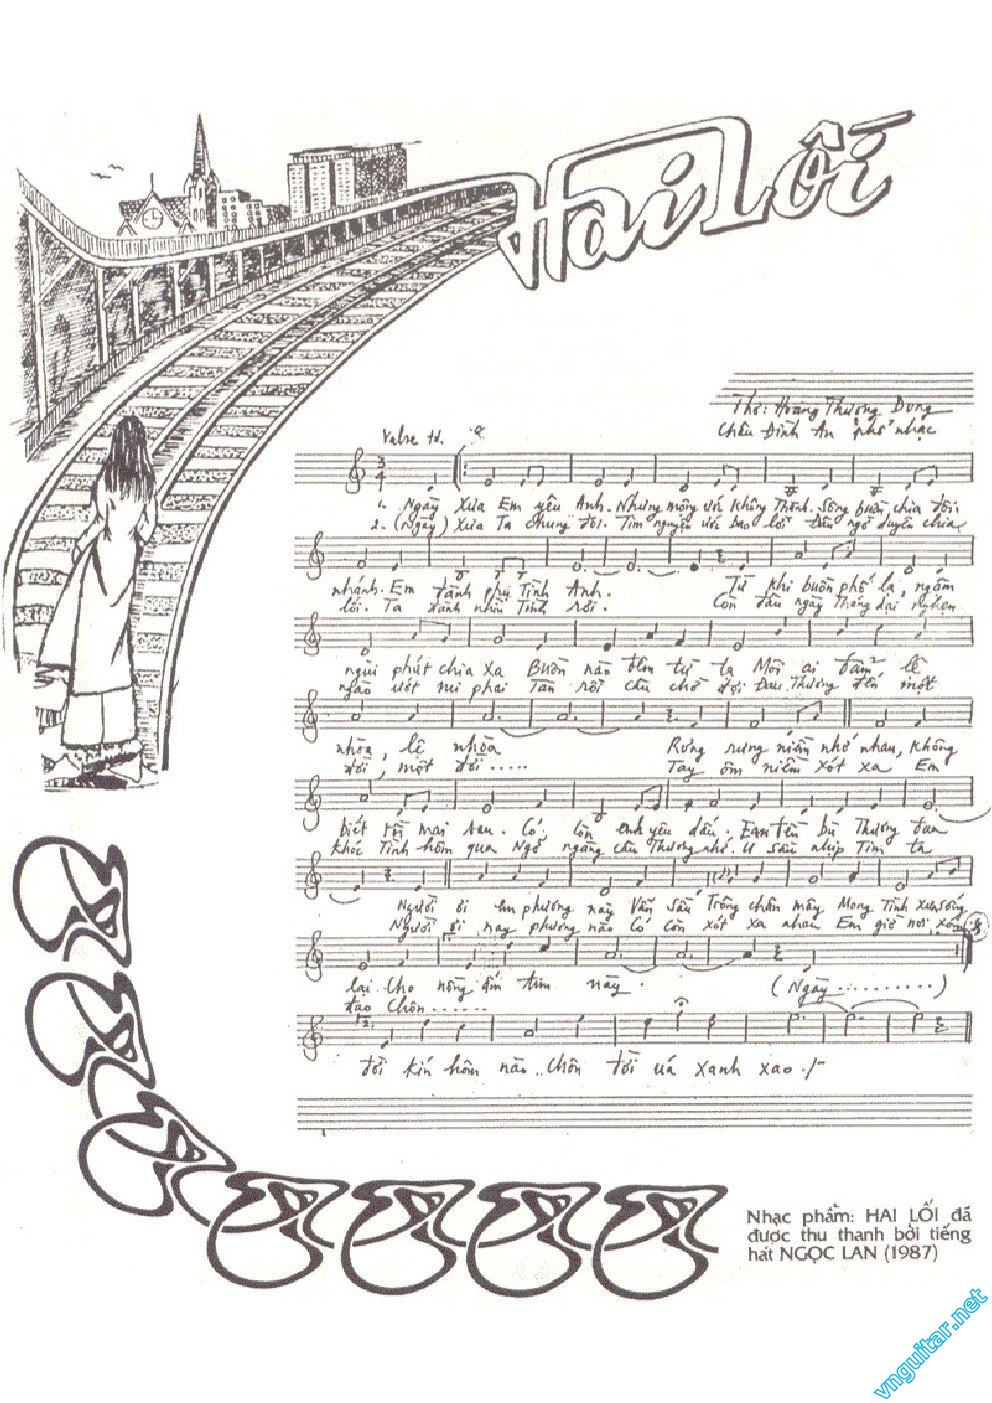 Hai Lối
Thơ: Hoàng Thương Dung
Châu Đình An phổ nhạc
Valse td.
3
4
1- Ngày Xưa Em yêu Anh. Nhưng mộng ước không Thành. Sông buồn chia đôi
2- (Ngày) Xưa Ta chung đôi. Tim nguyện ước bao lời Đâu ngờ duyên chia
nhánh. Em đành phụ Tình Anh. Từ khi buồn phố lạ, ngậm
lối. Ta đành nhìn Tình rơi. Còn đâu ngày Tháng dại nghẹn
ngùi phút chia xa Buồn nào đến từ ta Môi ai đẫm lệ
ngào ướt mi phai Tàn rồi câu chờ đợi Đau Thương đến một
nhòa, lệ nhòa Rưng rưng niềm nhớ nhau, không
đời, một đời ..... Tay ôm niềm xót xa Em
biết rồi mai sau. Có còn anh yêu dấu. Em đền bù Thương đau
khóc Tình hôm qua Ngỡ ngàng câu Thương nhớ. U sầu nhịp Tim ta
Người ơi phương này Vẫn sầu Trông chân mây Mong Tình xưa sống
Người ơi nay phương nào Có còn xót xa nhau Em giờ nơi
lại Cho nồng ấm tim này. (Ngày ..........)
đào Chôn ......
đời kín hôm nào.. Chôn đời úa xanh xao./-
Nhạc phẩm: HAI LỐI đã
được thu thanh bởi tiếng
hát NGỌC LAN (1987)
vnguitar.net